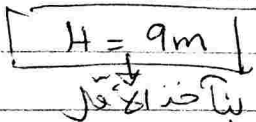 H = 9m
بنأخذ الأقل